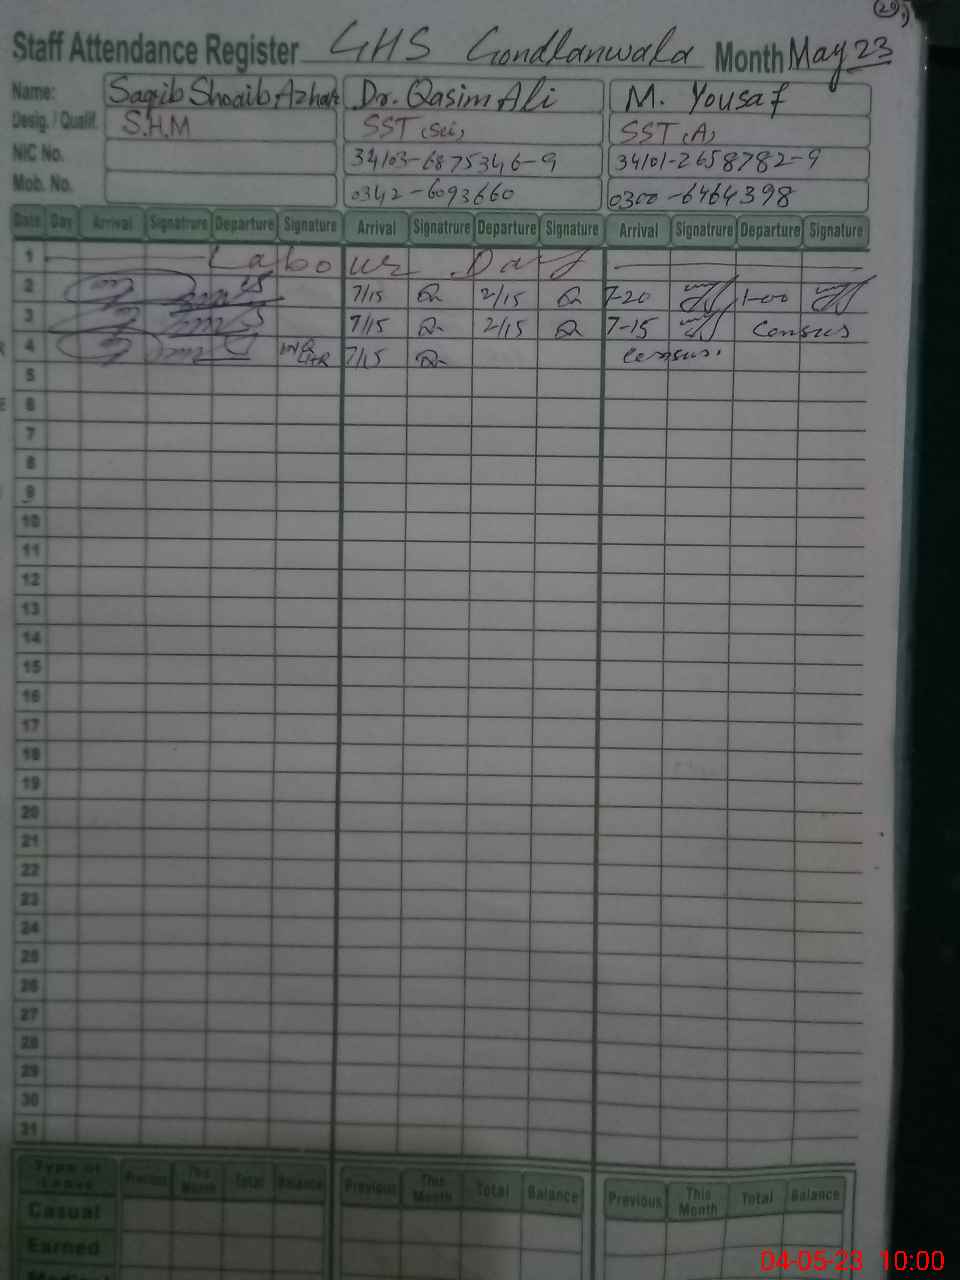 29
Staff Attendance Register GHS Gondlanwala Month May 23
Name: Saqib Shoaib Azhar Dr. Qasim Ali M. Yousaf
Desig. / Qualif. S.H.M SST (Sci) SST (A)
NIC No. 34103-6875346-9 34101-2658782-9
Mob. No. 0342-6093660 0300-6464398
Date Day Arrival Signatrure Departure Signature Arrival Signatrure Departure Signature Arrival Signatrure Departure Signature
1 Labour Day
2 7/15 2/15 7-20 1-00
3 7/15 2/15 7-15 Census
4 7/15 Census.
5
6
7
8
9
10
11
12
13
14
15
16
17
18
19
20
21
22
23
24
25
26
27
28
29
30
31
Type of Leave Previous This Month Total Balance Previous This Month Total Balance Previous This Month Total Balance
Casual
Earned
04-05-23 10:00